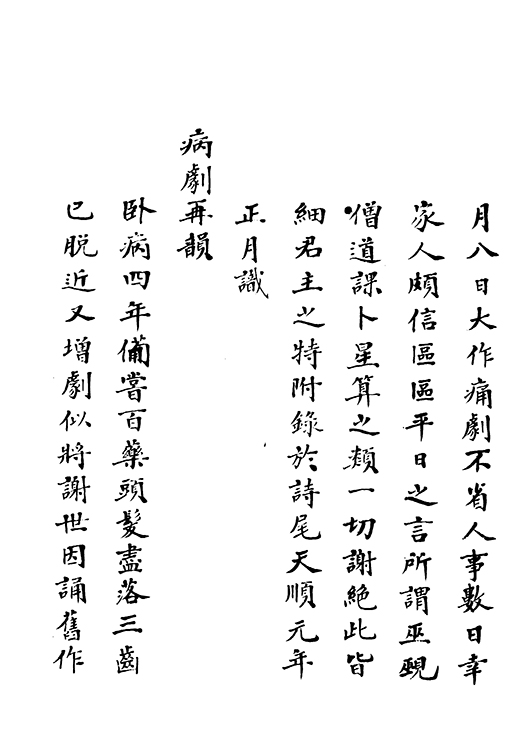 月八日大作痛劇不省人事數日幸
家人頗信區區平日之言所謂巫覡
僧道課卜星算之類一切謝絶此皆
細君主之特附錄於詩尾天順元年
正月識
病劇再韻
臥病四年備嘗百藥頭髮盡落三齒
已脱近又增劇似將謝世因誦舊作